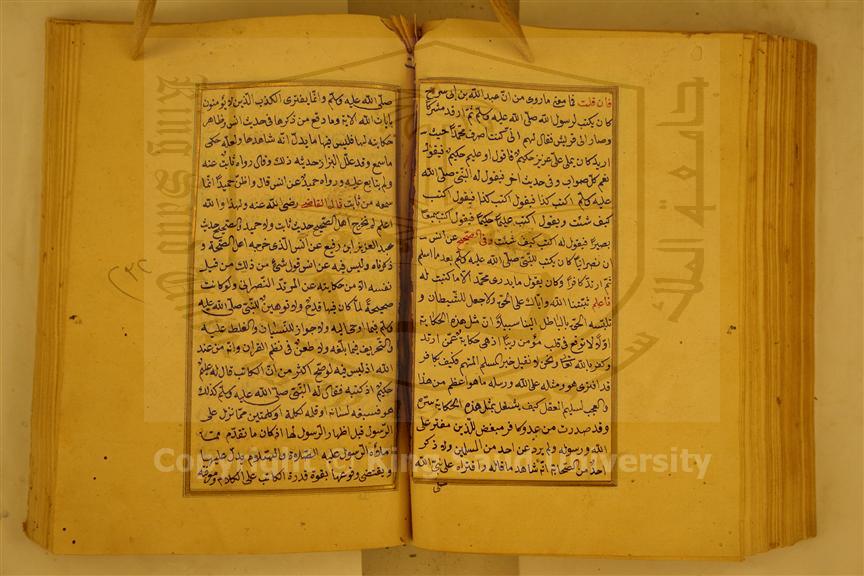 فان قلت فما معنى ما روى من ان عبد الله بن ابى سرح
كان يكتب لرسول الله صلى الله عليه وسلم ثم ارتد مشركا
وصار الى قريش فقال لهم انى كنت اصرف محمدا حيث
اريد كان يملى على عزيز حكيم فاقول او عليم حكيم فيقول
نعم كل صواب وفى حديث آخر فيقول له النبى صلى الله
عليه وسلم اكتب كذا فيقول اكتب كذا فيقول اكتب
كيف شئت ويقول اكتب عليما حكيما فيقول اكتب سميعا
بصيرا فيقول له اكتب كيف شئت وفى الصحيح عن انس
ان نصرانيا كان يكتب للنبى صلى الله عليه وسلم بعد ما اسلم
ثم ارتد كافرا وكان يقول ما يدرى محمد الا ما كتبت له
فاعلم ثبتنا الله واياك على الحق ولا جعل للشيطان و
تلبيسه الحق بالباطل الينا سبيلا ان مثل هذه الحكاية
اولا لا توقع فى قلب مؤمن ريبا اذ هى حكاية عمن ارتد
وكفر بالله ونحن لا نقبل خبر المسلم المتهم فكيف بكافر
قد افترى هو ومثله على الله ورسله ما هو اعظم من هذا
والعجب لسليم العقل كيف يشغل بمثل هذه الحكاية سره
وقد صدرت من عدو كافر مبغض للدين مفتر على
الله ورسوله ولم يرد عن احد من المسلمين ولا ذكر
احد من الصحابة انه شاهد ما قاله وافتراه على نبى الله
صلى
صلى الله عليه وسلم وانما يفترى الكذب الذين لا يؤمنون
بايات الله الاية وما وقع من ذكرها فى حديث انس وظاهر
حكايتها فليس فيها ما يدل انه شاهدها ولعله حكى
ما سمع وقد علل البزار حديثه ذلك وقال رواه ثابت عنه
ولم يتابع عليه ورواه حميد عن انس قال واظن حميدا انما
سمعه من ثابت قال القاضى رضى الله عنه ولهذا والله
اعلم لم يخرج اهل الصحيح حديث ثابت ولا حميد والصحيح حديث
عبد العزيز ابن رفيع عن انس الذى خرجه اهل الصحة و
ذكرناه وليس فيه عن انس قول شئ من ذلك من قبل
نفسه الا من حكايته عن المرتد النصرانى ولو كانت
صحيحة لما كان فيها قدح ولا توهين للنبى صلى الله عليه
وسلم فيما اوحى اليه ولا جواز للنسيان والغلط عليه
والتحريف فيما بلغه ولا طعن فى نظم القران وانه من عند
الله اذ ليس فيه لو صح اكثر من ان الكاتب قال له عليم
حكيم او كتبه فقال له النبى صلى الله عليه وسلم كذلك
هو فسبقه لسانه او قلمه لكلمة او كلمتين مما نزل على
الرسول قبل اظهار الرسول لها اذ كان ما تقدم مما
املاه الرسول عليه الصلاة والسلام يدل عليها
ويقتضى وقوعها بقوة قدرة الكاتب على الكلام ومعرفته
جامعة الملك سعود
King Saud University
Copyright © King Saud University